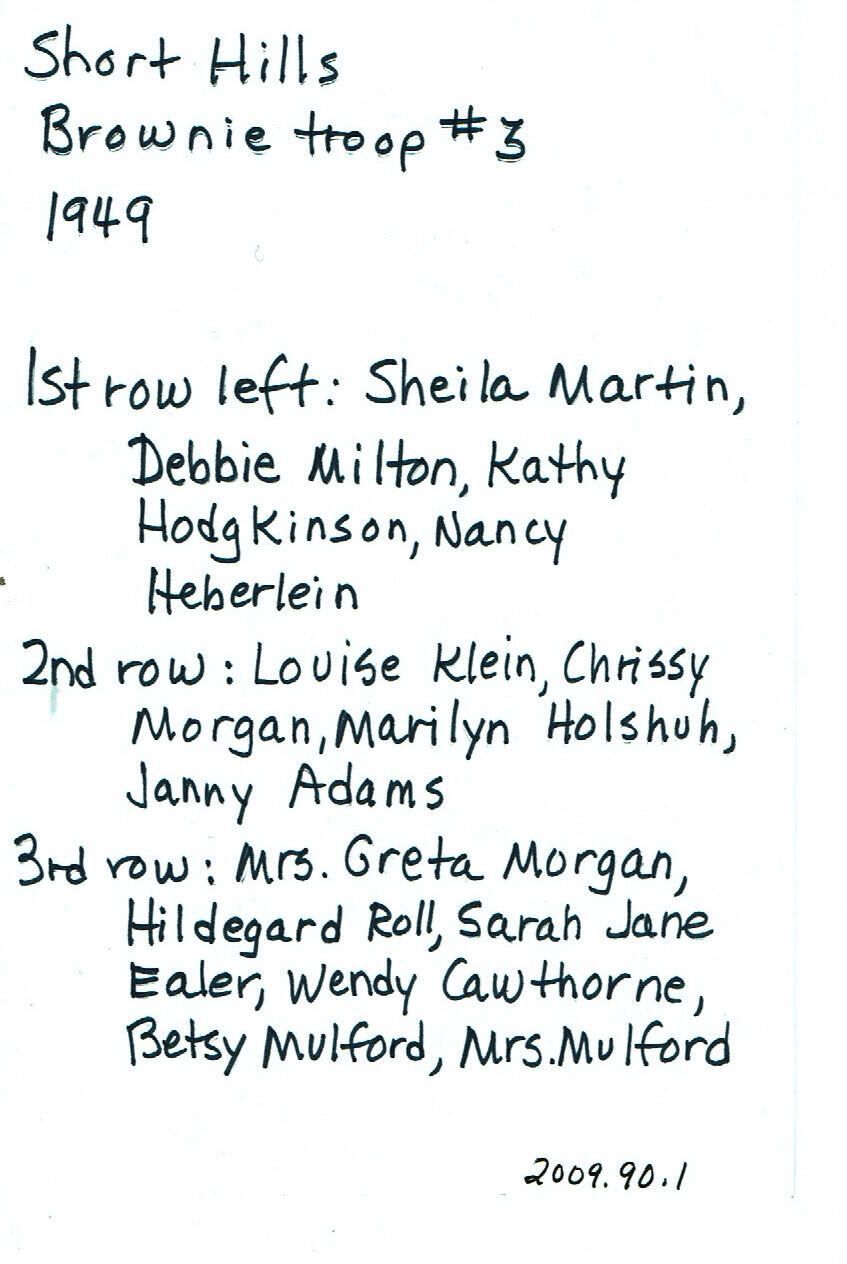 Short Hills
Brownie troop #3
1949
1st row left: Sheila Martin,
Debbie Milton, Kathy
Hodgkinson, Nancy
Heberlein
2nd row: Louise Klein, Chrissy
Morgan, Marilyn Holshuh,
Janny Adams
3rd row: Mrs. Greta Morgan,
Hildegard Roll, Sarah Jane
Ealer, Wendy Cawthorne,
Betsy Mulford, Mrs. Mulford
2009.90.1